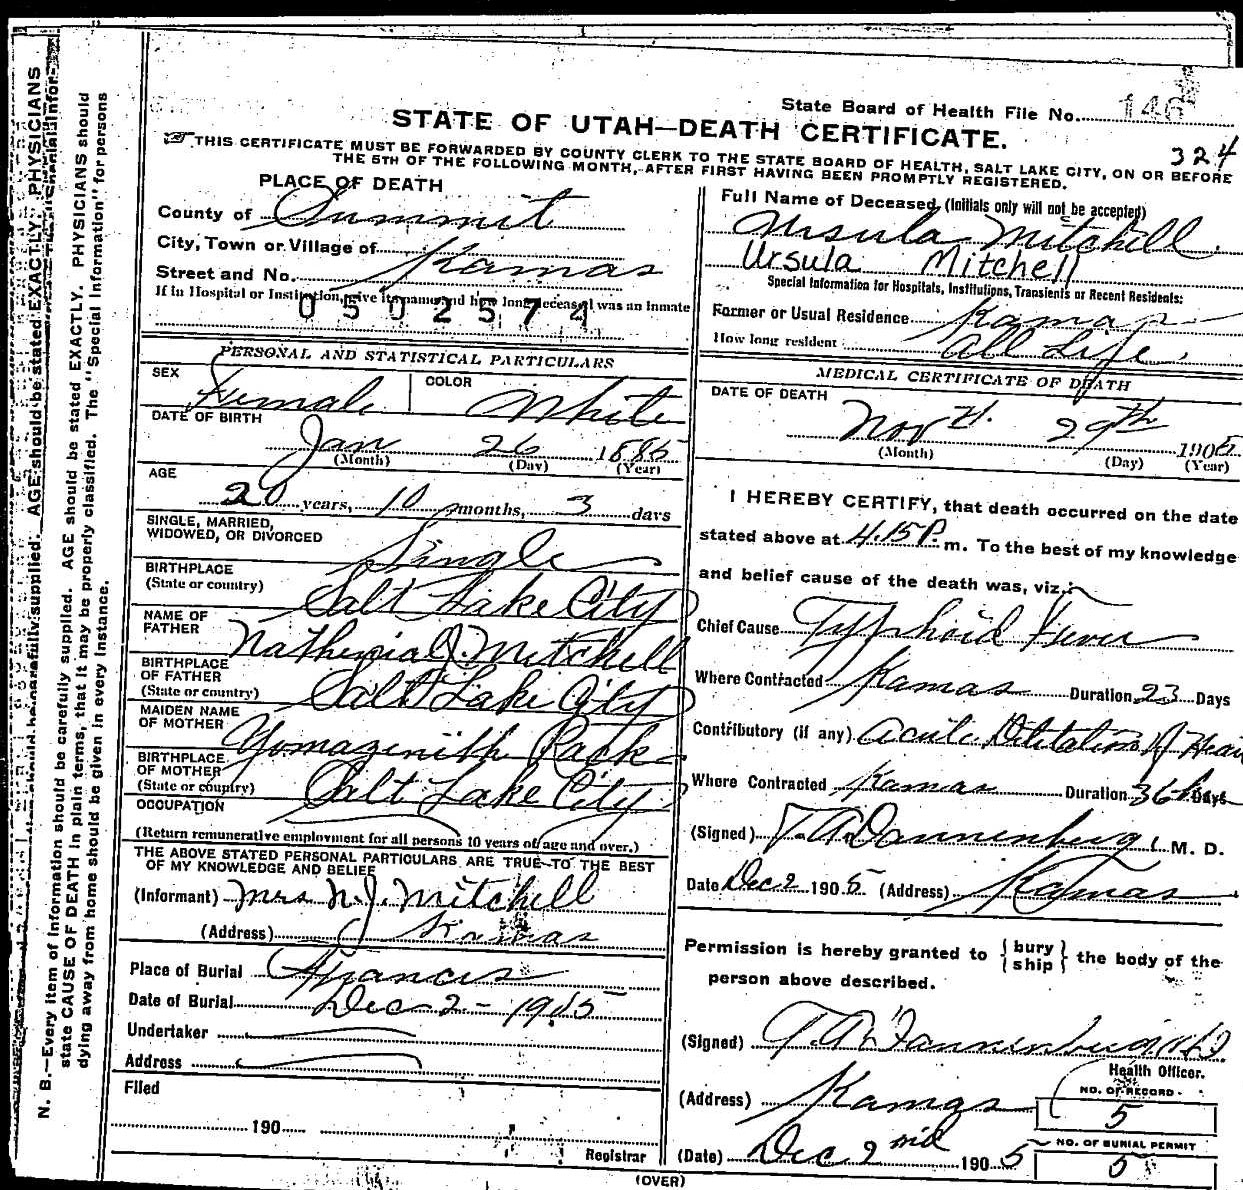 N. B.—Every item of Information should be carefully supplied. AGE should be stated EXACTLY. PHYSICIANS should
state CAUSE OF DEATH in plain terms, that it may be properly classified. The "Special Information" for persons
dying away from home should be given in every instance.
State Board of Health File No. 146
STATE OF UTAH—DEATH CERTIFICATE.
324
THIS CERTIFICATE MUST BE FORWARDED BY COUNTY CLERK TO THE STATE BOARD OF HEALTH, SALT LAKE CITY, ON OR BEFORE
THE 5TH OF THE FOLLOWING MONTH, AFTER FIRST HAVING BEEN PROMPTLY REGISTERED.
PLACE OF DEATH
County of Summit
City, Town or Village of Kamas
Street and No.
If in Hospital or Institution, give its name and how long deceased was an Inmate
0502574
PERSONAL AND STATISTICAL PARTICULARS
SEX Female COLOR White
DATE OF BIRTH
Jan 26 1885
(Month) (Day) (Year)
AGE
20 years, 10 months, 3 days
SINGLE, MARRIED,
WIDOWED, OR DIVORCED Single
BIRTHPLACE
(State or country) Salt Lake City
NAME OF
FATHER Nathenial J. Mitchell
BIRTHPLACE
OF FATHER
(State or country) Salt Lake City
MAIDEN NAME
OF MOTHER Rack
BIRTHPLACE
OF MOTHER
(State or country) Salt Lake City
OCCUPATION
(Return remunerative employment for all persons 10 years of age and over.)
THE ABOVE STATED PERSONAL PARTICULARS ARE TRUE TO THE BEST
OF MY KNOWLEDGE AND BELIEF
(Informant) Mrs N. J. Mitchell
(Address) Kamas
Place of Burial Francis
Date of Burial Dec 2 - 1905
Undertaker
Address
Filed
190
Registrar
Full Name of Deceased, (Initials only will not be accepted)
Ursula Mitchell.
Ursula Mitchell
Special Information for Hospitals, Institutions, Transients or Recent Residents:
Former or Usual Residence Kamas
How long resident All Life.
MEDICAL CERTIFICATE OF DEATH
DATE OF DEATH
Nov 29th 1905
(Month) (Day) (Year)
I HEREBY CERTIFY, that death occurred on the date
stated above at 4.15 P. m. To the best of my knowledge
and belief cause of the death was, viz.:
Chief Cause Typhoid Fever
Where Contracted Kamas Duration 23 Days
Contributory (if any) Acute Dilitation of Heart
Where Contracted Kamas Duration 36 hrs Days
(Signed) T. A. Dannenberg, M. D.
Date Dec 2 1905 (Address) Kamas
Permission is hereby granted to { bury ship } the body of the
person above described.
(Signed) T. A. Dannenberg M D
Health Officer.
(Address) Kamas
NO. OF RECORD
5
(Date) Dec 2nd 1905
NO. OF BURIAL PERMIT
5
(OVER)